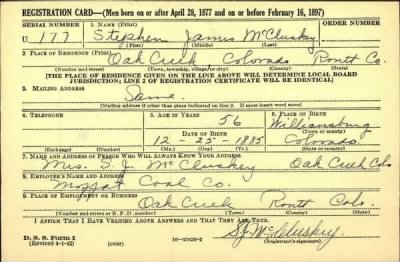 REGISTRATION CARD—(Men born on or after April 28, 1877 and on or before February 16, 1897)
SERIAL NUMBER 1. NAME (Print) ORDER NUMBER
U 177 Stephen James McCluskey
(First) (Middle) (Last)
2. PLACE OF RESIDENCE (Print)
Oak Creek Colorado Routt Co.
(Number and street) (Town, township, village, or city) (County) (State)
[THE PLACE OF RESIDENCE GIVEN ON THE LINE ABOVE WILL DETERMINE LOCAL BOARD
JURISDICTION; LINE 2 OF REGISTRATION CERTIFICATE WILL BE IDENTICAL]
3. MAILING ADDRESS
Same
[Mailing address if other than place indicated on line 2. If same insert word same]
4. TELEPHONE 5. AGE IN YEARS 6. PLACE OF BIRTH
56 Williamsburg
DATE OF BIRTH (Town or county)
12 - 25 - 1885 Colorado
(Exchange) (Number) (Mo.) (Day) (Yr.) (State or country)
7. NAME AND ADDRESS OF PERSON WHO WILL ALWAYS KNOW YOUR ADDRESS
Mrs. S. J. McCluskey Oak Creek Colo
8. EMPLOYER'S NAME AND ADDRESS
Moffat Coal Co.
9. PLACE OF EMPLOYMENT OR BUSINESS
Oak Creek Routt Colo.
(Number and street or R. F. D. number) (Town) (County) (State)
I AFFIRM THAT I HAVE VERIFIED ABOVE ANSWERS AND THAT THEY ARE TRUE.
D. S. S. Form 1 S. J. McCluskey
(Revised 4-1-42) (over) (Registrant's signature)